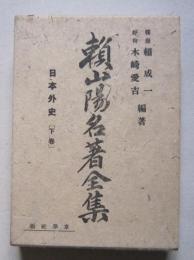 頼成一
木崎愛吉
編著
頼山陽名著全集
日本外史［下巻］
章華社版